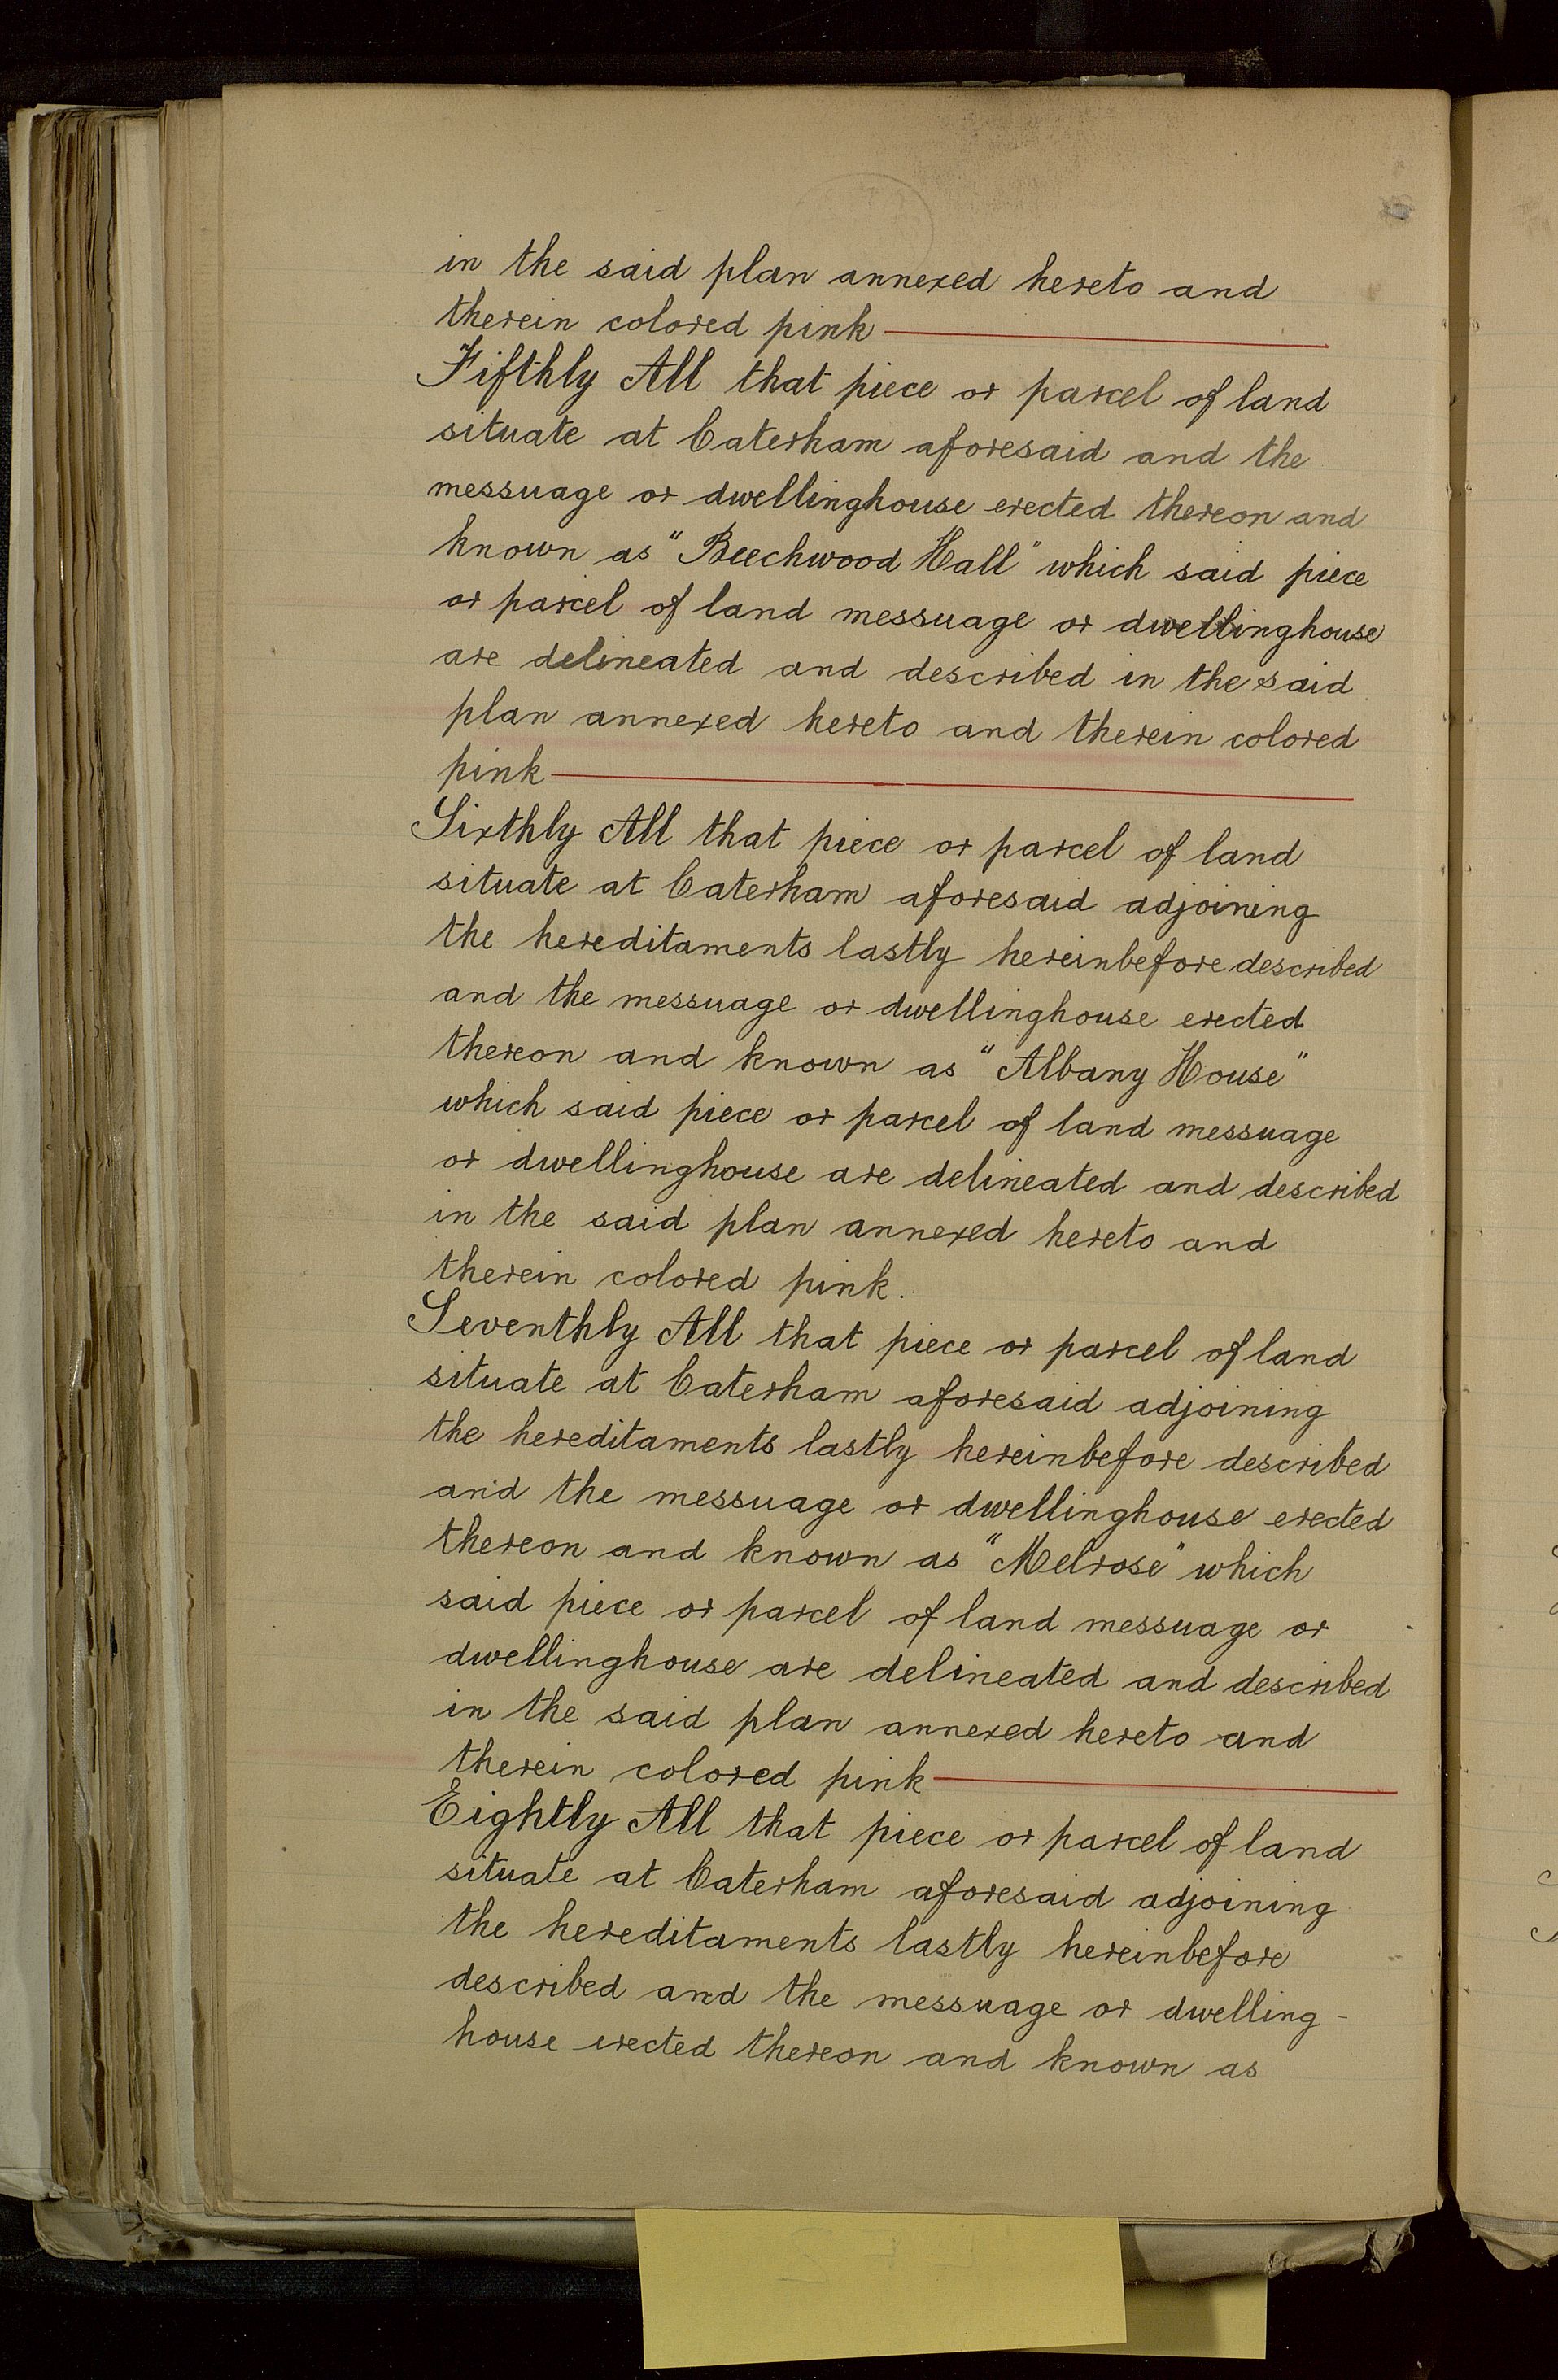 in the said plan annexed hereto and
therein colored pink
Fifthly All that piece or parcel of land
situate at Caterham aforesaid and the
messuage or dwellinghouse erected thereon and
known as "Beechwood Hall" which said piece
or parcel of land messuage or dwellinghouse
are delineated and described in the said
plan annexed hereto and therein colored
pink
Sixthly All that piece or parcel of land
situate at Caterham aforesaid adjoining
the hereditaments lastly hereinbefore described
and the messuage or dwellinghouse erected
thereon and known as "Albany House"
which said piece or parcel of land messuage
or dwellinghouse are delineated and described
in the said plan annexed hereto and
therein colored pink.
Seventhly All that piece or parcel of land
situate at Caterham aforesaid adjoining
the hereditaments lastly hereinbefore described
and the messuage or dwellinghouse erected
thereon and known as "Melrose" which
said piece or parcel of land messuage or
dwellinghouse are delineated and described
in the said plan annexed hereto and
therein colored pink
Eightly All that piece or parcel of land
situate at Caterham aforesaid adjoining
the hereditaments lastly hereinbefore
described and the messuage or dwelling-
house erected thereon and known as